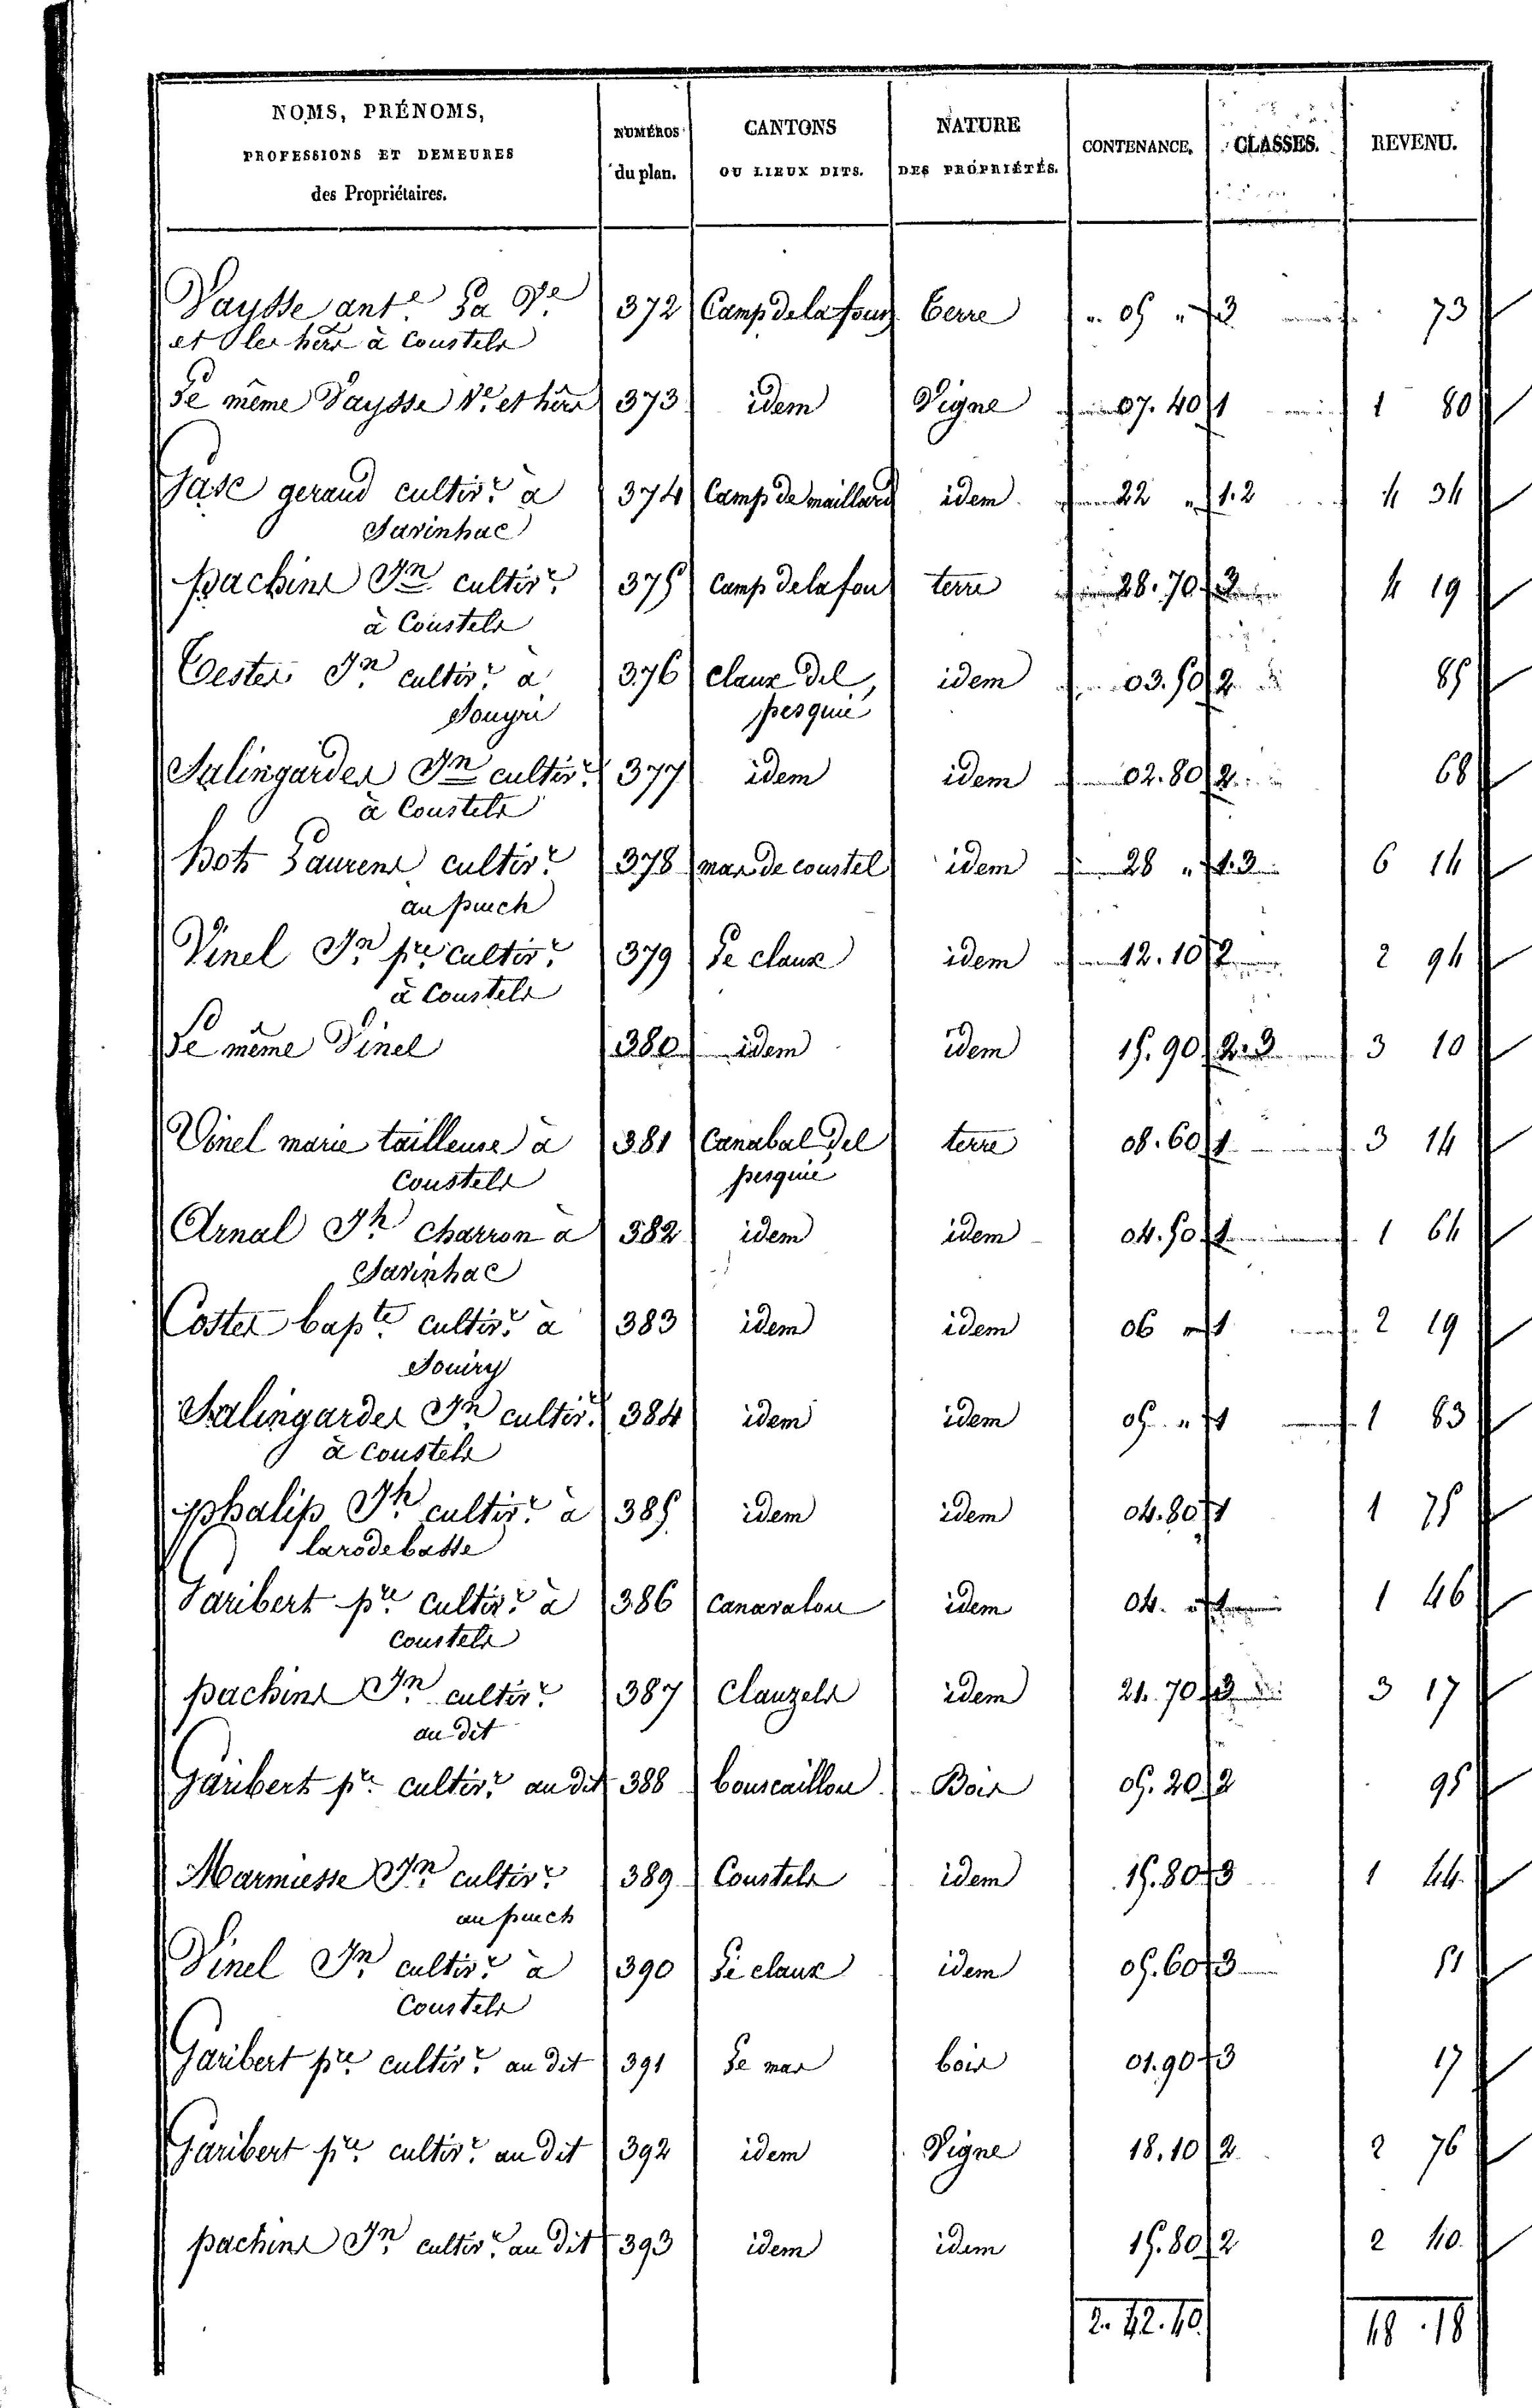 NOMS, PRÉNOMS, PROFESSIONS ET DEMEURES des Propriétaires. NUMÉROS du plan. CANTONS OU LIEUX DITS. NATURE DES PROPRIÉTÉS. CONTENANCE. CLASSES. REVENU.
Vaysse ant.e La V.e 372 Camp de la fouz terre " 05 " 3 73
et les hérs à Coustels
Le même Vaysse V.e et hérs 373 idem Vigne 07. 40 1 1 80
Gasc geraud cultiv.r à 374 Camp de maillard idem 22 " 1. 2 4 34
Sarinhac
pachins Jn cultiv.r 375 Camp de la fou terre 28. 70 3 4 19
à Coustels
Testes Jn cultiv.r à 376 claux del idem 03. 50 2 85
Souyri pesquié
Salingardes Jn cultiv.r 377 idem idem 02. 80 2 68
à Coustels
bots Laurens cultiv.r 378 mas de coustel idem 28 " 1. 3 6 14
au puech
Vinel Jn p.re cultiv.r 379 Le claux idem 12. 10 2 2 94
à Coustels
Le même Vinel 380 idem idem 15. 90 2. 3 3 10
Vinel marie tailleuse à 381 Canabal del terre 08. 60 1 3 14
Coustels pesquié
Arnal Jh Charron à 382 idem idem 04. 50 1 1 64
Sarinhac
Costes bap.te cultiv.r à 383 idem idem 06 " 1 2 19
Souiry
Salingardes Jn cultiv.r 384 idem idem 05 " 1 1 83
à Coustels
phalip Jh cultiv.r à 385 idem idem 04. 80 1 1 75
larodebasse
Garibert p.re cultiv.r à 386 Canavalou idem 04. " 1 1 46
Coustels
pachins Jn cultiv.r 387 Clauzels idem 21. 70 3 3 17
au dit
Garibert p.re cultiv.r au dit 388 bouscaillou Bois 05. 20 2 95
Marmiesse Jn cultiv.r 389 Coustels idem 15. 80 3 1 44
au puech
Vinel Jn cultiv.r à 390 Le claux idem 05. 60 3 51
Coustels
Garibert p.re cultiv.r au dit 391 Le mas bois 01. 90 3 17
Garibert p.re cultiv.r au dit 392 idem Vigne 18. 10 2 2 76
pachins Jn cultiv.r au dit 393 idem idem 15. 80 2 2 40
2. 42. 40 48. 18